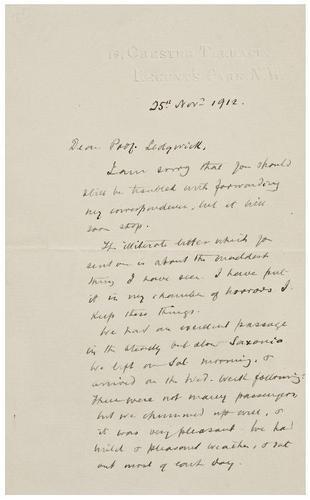 18, Chester Terrace,
Regent's Park. N.W.
25th Novr 1912.
Dear Prof. Sedgwick,
I am sorry that you should
still be troubled with forwarding
my correspondence, but it will
soon stop.
The illiterate letter which you
sent on is about the maddest
thing I have seen. I have put
it in my chamber of horrors. I
keep these things.
We had an excellent passage
in the steady but slow Saxonia
We left on Sat. morning, &
arrived on the Wed. week following.
There were not many passengers,
but we chummed up well, &
it was very pleasant. We had
mild & pleasant weather, & sat
out most of each day.